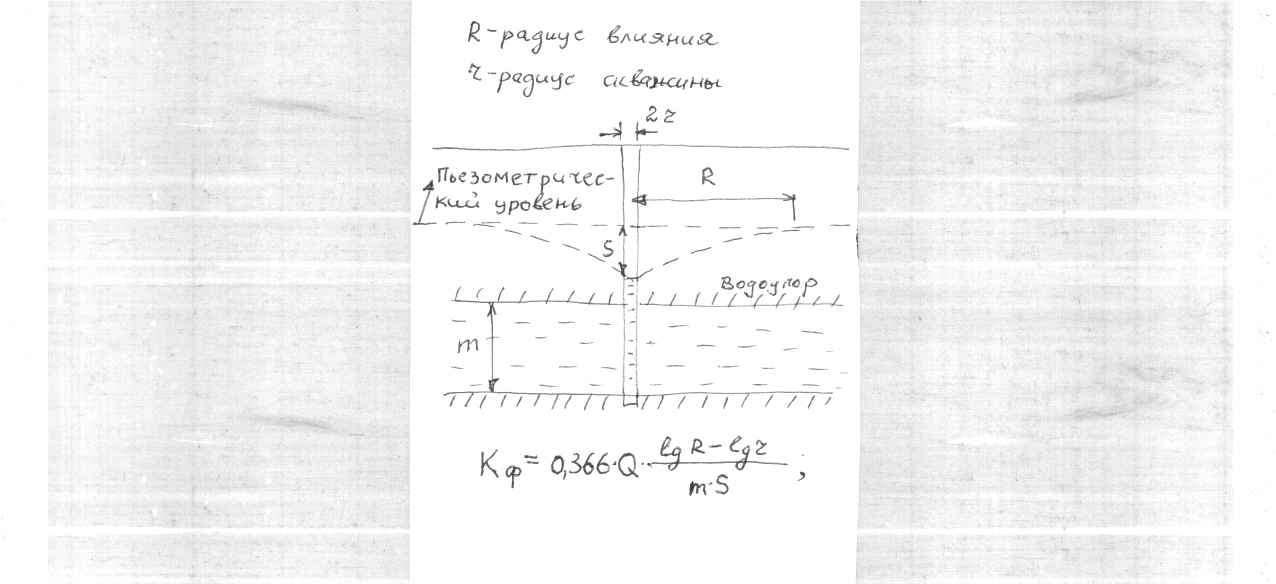 R-радиус влияния
r-радиус скважины
2r
Пьезометричес-
кий уровень
R
S
Водоупор
m
Kф = 0,366·Q· (lg R - lg r) / (m·S) ;